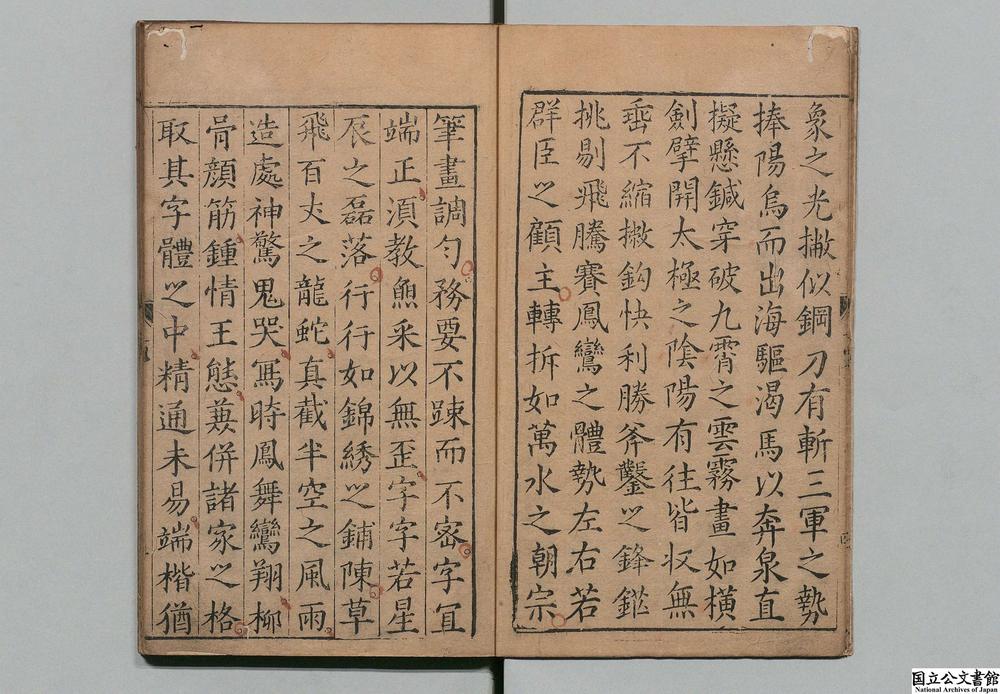 象之光撇似鋼刀有斬三軍之勢
捧陽烏而出海驅渴馬以奔泉直
擬懸鍼穿破九霄之雲霧畫如橫
劍擘開太極之陰陽有往皆收無
垂不縮撇鈎快利勝斧鑿之鋒鋩
挑剔飛騰賽鳳鸞之體勢左右若
群臣之顧主轉拆如萬水之朝宗
筆畫調勻務要不踈而不密字冝
端正湏教無采以無歪字字若星
辰之磊落行行如錦綉之鋪陳草
飛百丈之龍蛇真截半空之風雨
造處神驚鬼哭寫時鳳舞鸞翔柳
骨顏筋鍾情王態兼併諸家之格
取其字體之中精通未易端楷猶
国立公文書館
National Archives of Japan